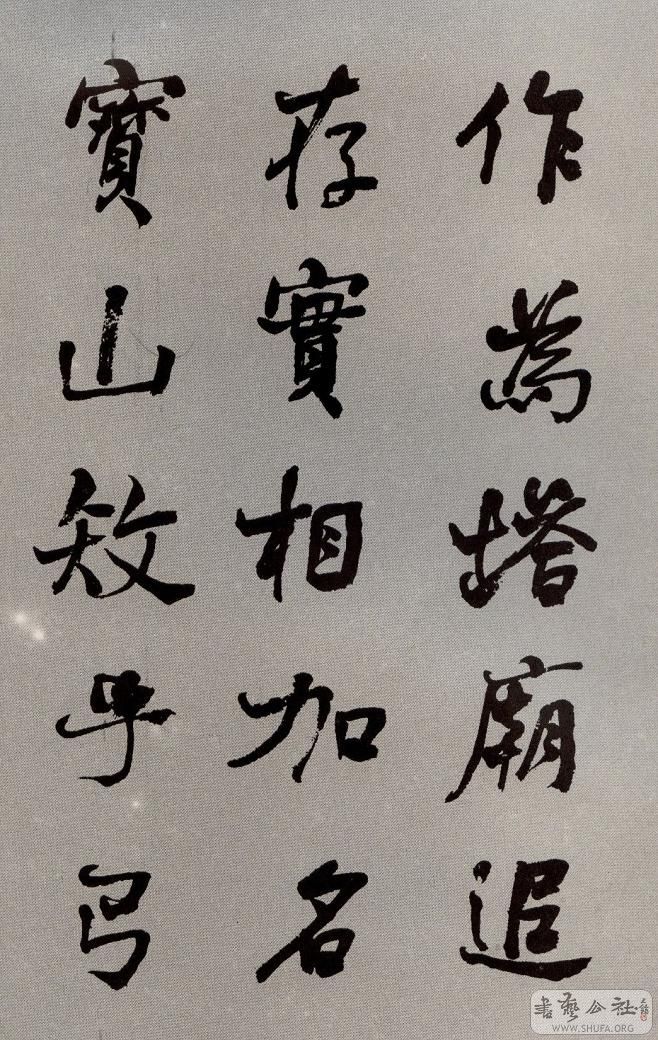 作為塔廟追
存實相加名
寶山乎弓
書藝公社
WWW.SHUFA.ORG